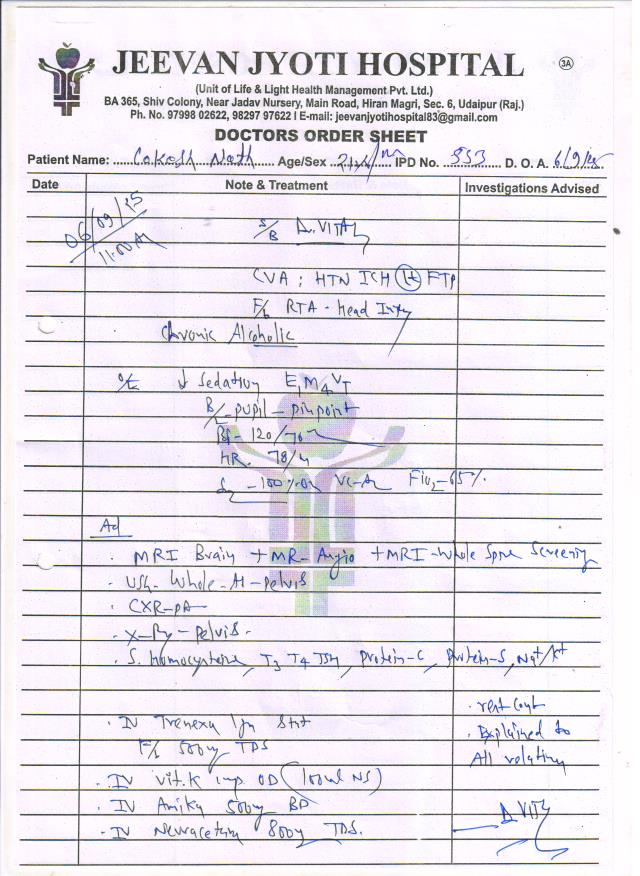 JEEVAN JYOTI HOSPITAL
3A
(Unit of Life & Light Health Management Pvt. Ltd.)
BA 365, Shiv Colony, Near Jadav Nursery, Main Road, Hiran Magri, Sec. 6, Udaipur (Raj.)
Ph. No. 97998 02622, 98297 97622 I E-mail: jeevanjyotihospital83@gmail.com
DOCTORS ORDER SHEET
Patient Name: Nath Age/Sex IPD No. 553 D. O. A. 6/9/25
Date Note & Treatment Investigations Advised
06/09/25
11:00 AM
S/B D.VITAL
CVA ; HTN ICH Lt FTP
RTA - Head
Chronic Alcoholic
O/E ↓ Sedation E1M4VT
B/L - pupil - pinpoint
BP - 120/70
HR. 78/
- 100% on FiO2 - 65%
Ad
· MRI Brain + MR- Angio + MRI - Whole Spine Screening
· USG- Whole - - pelvis
· CXR - PA
· X-Ray - Pelvis.
· S. homocysteine, T3 T4 TSH, protein-C, protein-S, Na+/K+
· rest cont
· IV Tranexa stat
· Explained to
F/b 500mg TDS
All
· IV vit. K OD (100ml NS)
· IV 500mg BD
D.VITAL
· IV 800mg TDS.